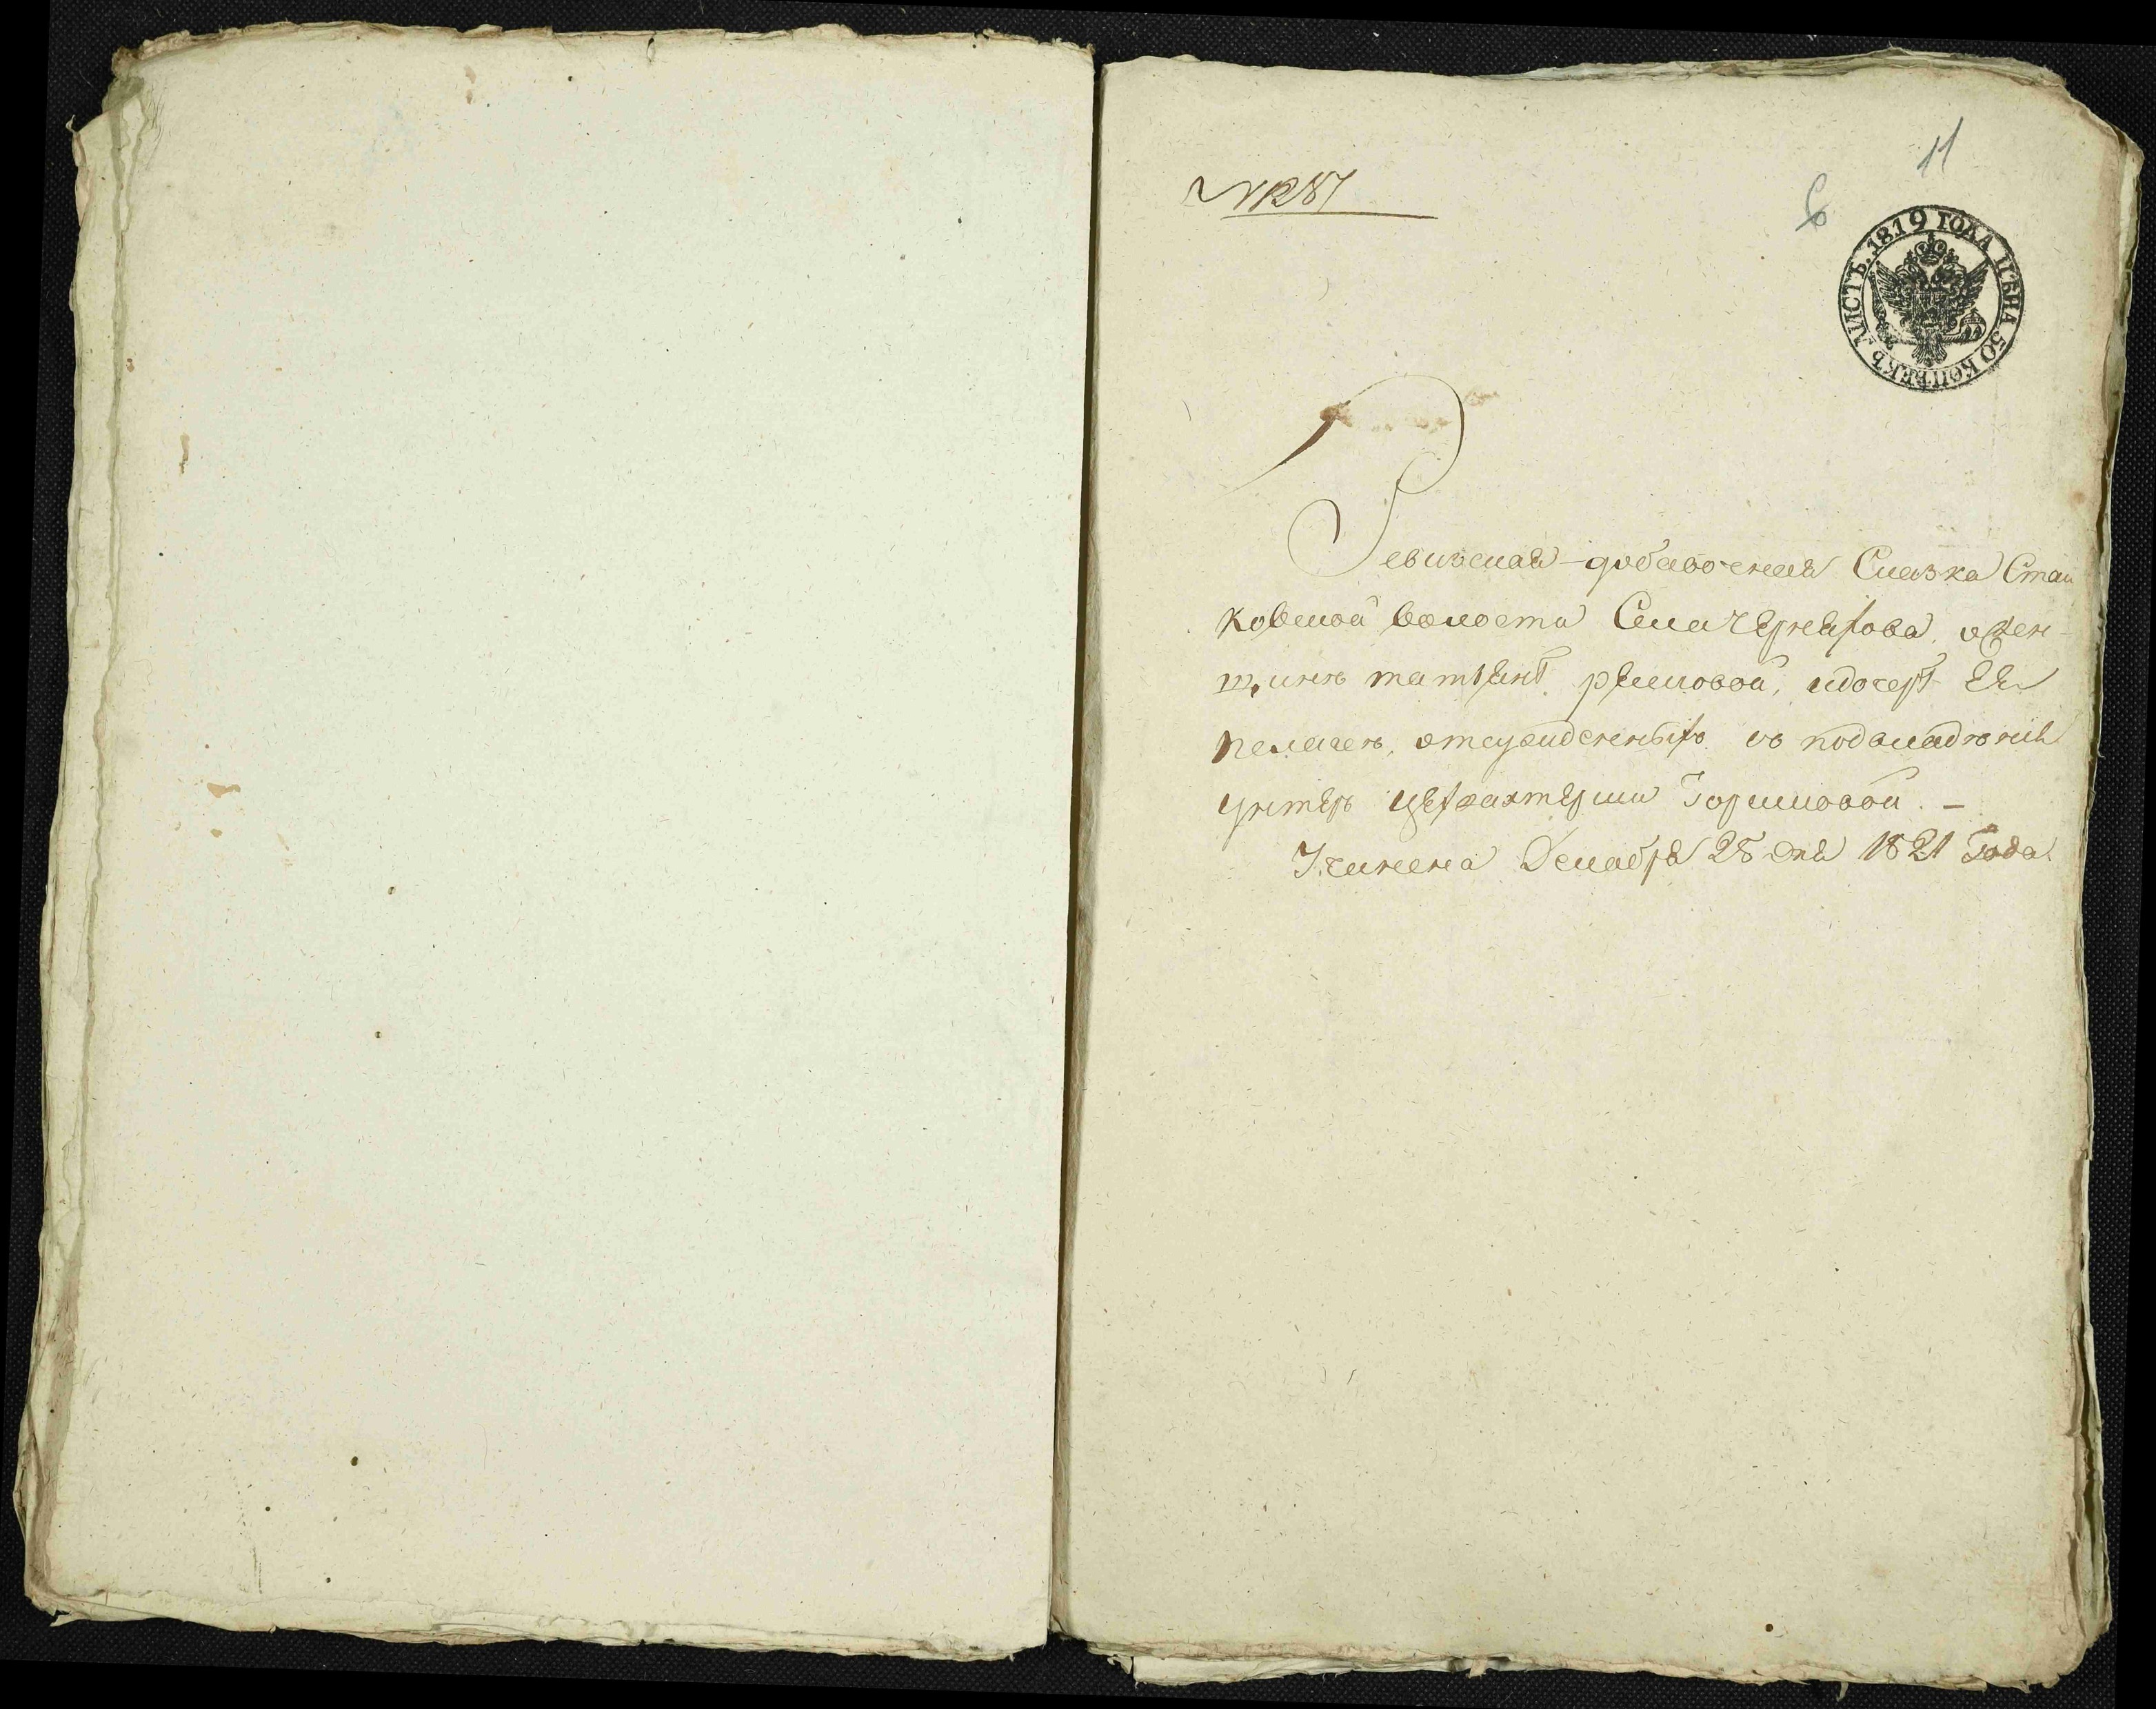 11
№ 1287
6
ЛИСТЪ. 1819 ГОДА ЦѢНА 50 КОПѢЕКЪ
Ревизская добавочная Сказка Стан
ковской волости Села Чернѧхова, о жен-
щинѣ татьянѣ рышковой, идочерѣ Ея
пелагеѣ, отсужденныхъ въ подвладѣние
унтеръ цейхвахтерши Горшковой. —
Учинена Декабря 28 дня 1821 Года.